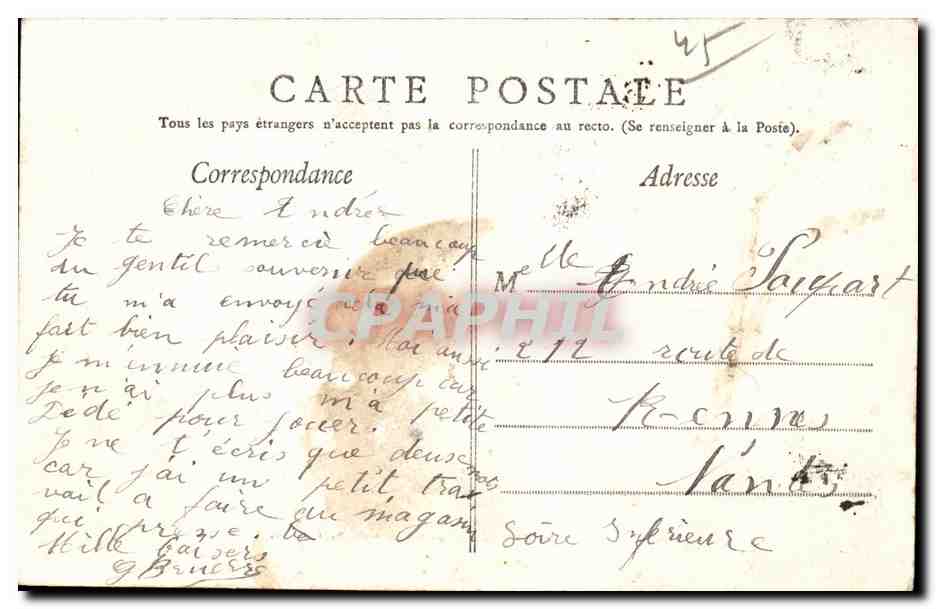 45
CARTE POSTALE
Tous les pays étrangers n'acceptent pas la correspondance au recto. (Se renseigner à la Poste).
Correspondance
Chère Andrée
Je te remercie beaucoup
du gentil souvenir que
tu m'a envoyé cela m'a
fort bien plaisir. Moi aussi
je m'ennuie beaucoup car
je n'ai plus m'a petite
Dédé pour jouer.
Je ne t'écris que deuse mots
car j'ai un petit tra
vail a faire au magasin
qui presse.
Mille baisers
G
Adresse
M de lle Andrée
212 route de
Rennes
Nantes
Loire Inférieure
CPAPHIL